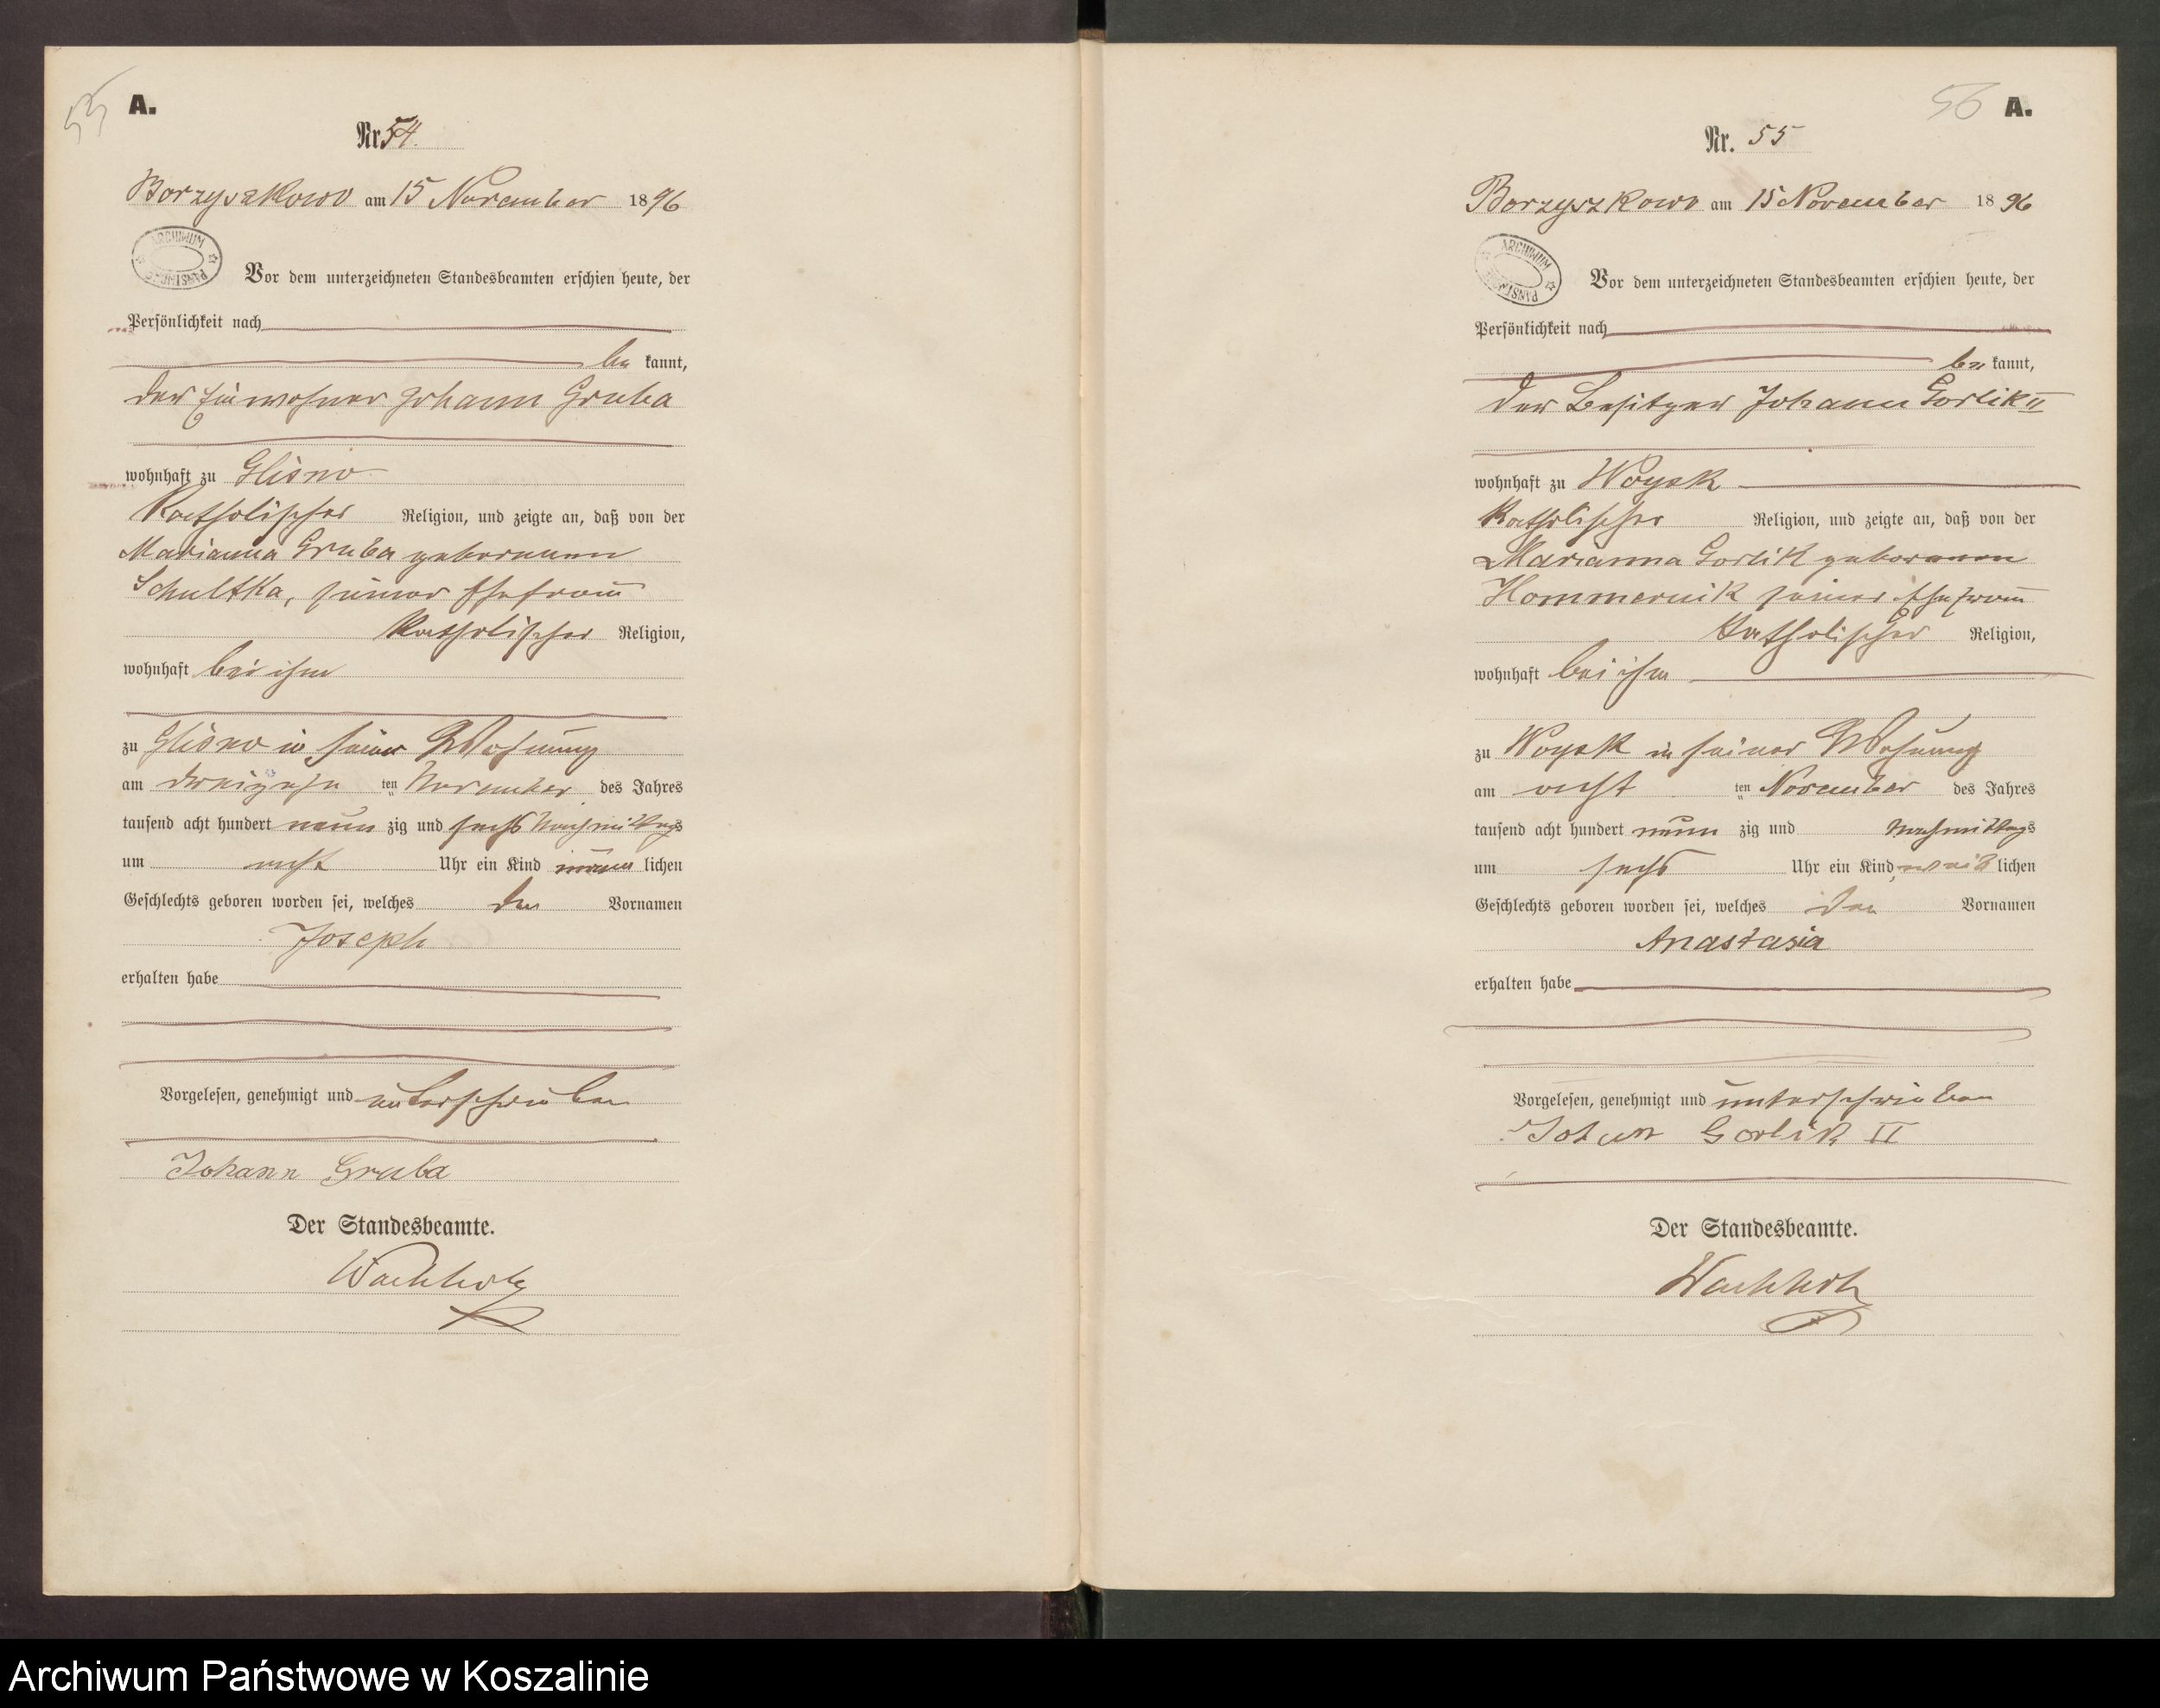 55
A.
Nr. 54.
Borzyszkowo am 15 November 1896
ARCHIWUM PAŃSTWOWE
Vor dem unterzeichneten Standesbeamten erschien heute, der
Persönlichkeit nach
be kannt,
der Einwohner Johann Gruba
wohnhaft zu Glisno
katholischer Religion, und zeigte an, daß von der
Marianna Gruba geborenen
Schultka, seiner Ehefrau
katholischer Religion,
wohnhaft bei ihm
zu Glisno in seiner Wohnung
am dreizehn ten November des Jahres
tausend acht hundert neun zig und sechs Nachmittags
um acht Uhr ein Kind männ lichen
Geschlechts geboren worden sei, welches den Vornamen
Joseph
erhalten habe
Vorgelesen, genehmigt und unterschrieben
Johann Gruba
Der Standesbeamte.
Wachholz
56
A.
Nr. 55
Borzyszkowo am 15 November 1896
ARCHIWUM PAŃSTWOWE
Vor dem unterzeichneten Standesbeamten erschien heute, der
Persönlichkeit nach
be kannt,
der Besitzer Johann Gorlik II
wohnhaft zu Woysk
katholischer Religion, und zeigte an, daß von der
Marianna Gorlik geborenen
Hommernik seiner Ehefrau
katholischer Religion,
wohnhaft bei ihm
zu Woysk in seiner Wohnung
am acht ten November des Jahres
tausend acht hundert neun zig und Nachmittags
um sechs Uhr ein Kind weib lichen
Geschlechts geboren worden sei, welches den Vornamen
Anastasia
erhalten habe
Vorgelesen, genehmigt und unterschrieben
Johan Gorlik II
Der Standesbeamte.
Wachholz
Archiwum Państwowe w Koszalinie